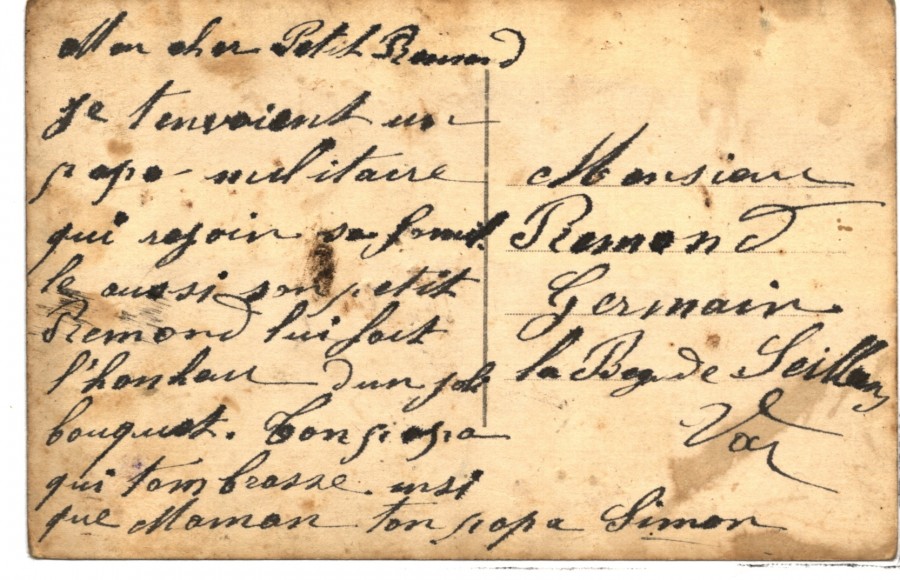 Mon cher Petit Remond
je t'envoient un
papa militaire
qui rejoin sa famil
le aussi son petit
Remond lui fait
l'honheur d'un joli
bouquet. Ton papa
qui t'ombrasse insi
que Maman ton papa Simon
Monsieur
Remond
Germain
la Bégude Seillans
Var